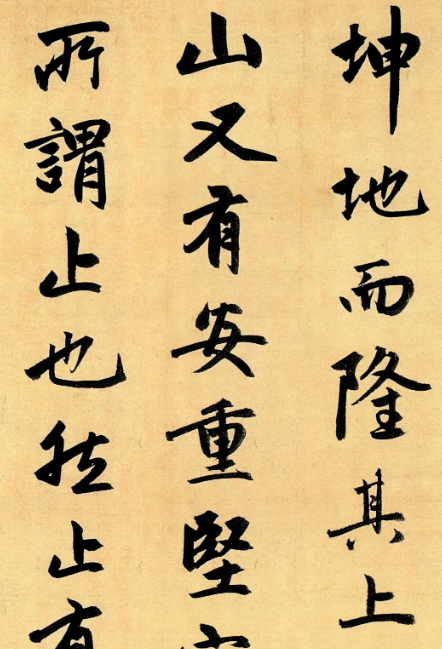 坤地而隆其上
山又有安重堅
所謂止也然止有